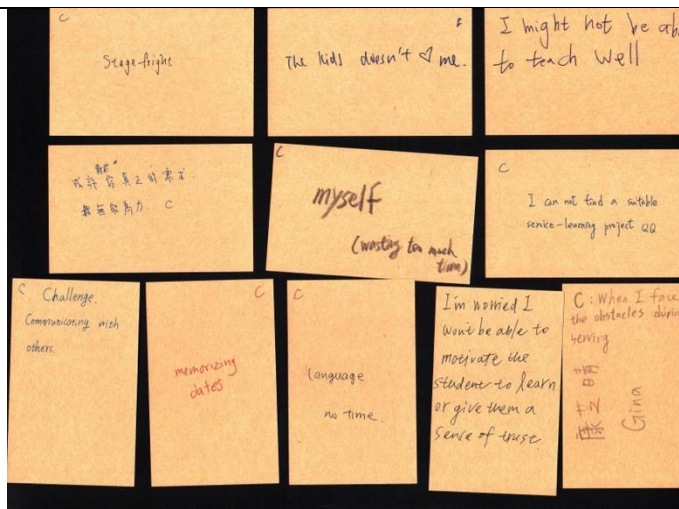 C
Stage-fright
E
The kids doesn't ♡ me.
I might not be ab
to teach well
或許 你真正的需求.
我無能為力. C
C
myself
(wasting too much
time)
C
I can not find a suitable
service-learning project QQ
C Challenge.
Communicating with
others.
C
memorizing
dates
C
language
no time.
I'm worried I
won't be able to
motivate the
student to learn
or give them a
sense of trust.
C: When I face
the obstacles durin
serving
Gina